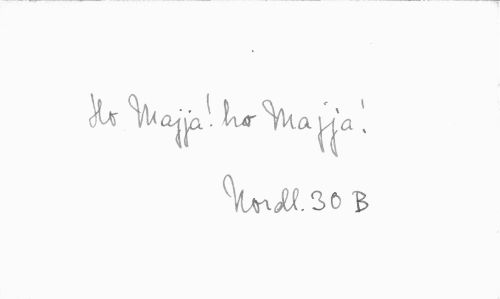 Ho Majja! ho Majja!
Nordl. 30 B